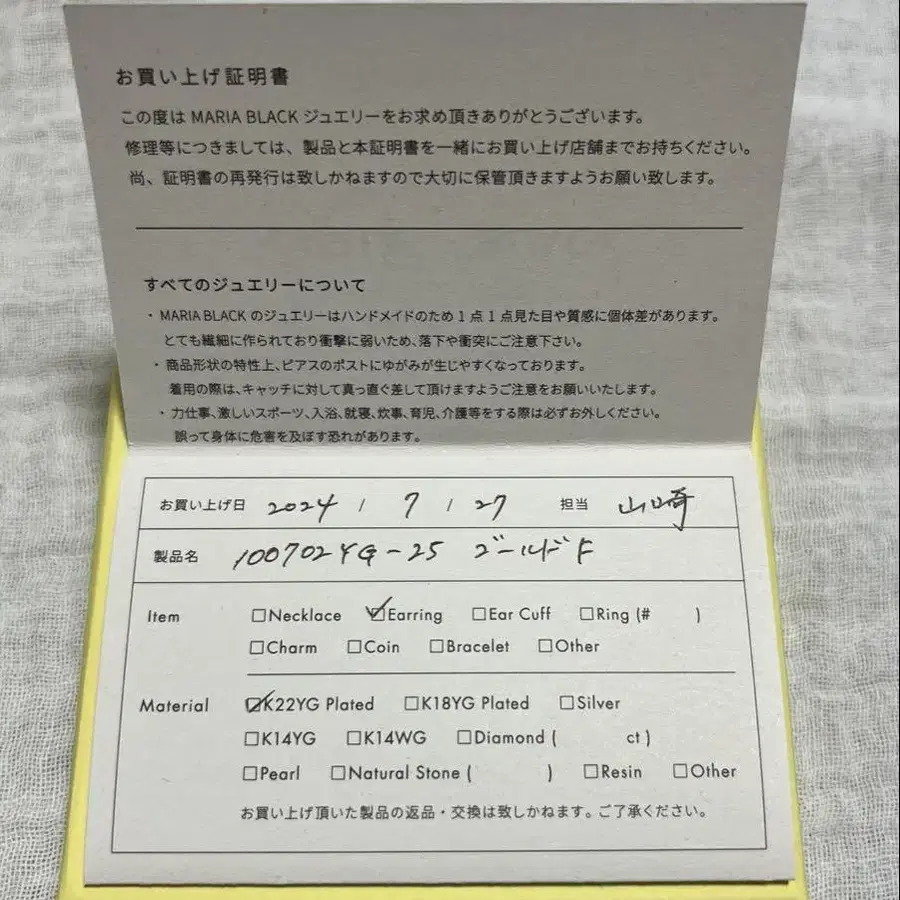 お買い上げ証明書
この度は MARIA BLACK ジュエリーをお求め頂きありがとうございます。
修理等につきましては、製品と本証明書を一緒にお買い上げ店舗までお持ちください。
尚、証明書の再発行は致しかねますので大切に保管頂きますようお願い致します。
すべてのジュエリーについて
・MARIA BLACK のジュエリーはハンドメイドのため1点1点見た目や質感に個体差があります。
とても繊細に作られており衝撃に弱いため、落下や衝突にご注意下さい。
・商品形状の特性上、ピアスのポストにゆがみが生じやすくなっております。
着用の際は、キャッチに対して真っ直ぐ差して頂けますようご注意をお願いいたします。
・力仕事、激しいスポーツ、入浴、就寝、炊事、育児、介護等をする際は必ずお外しください。
誤って身体に危害を及ぼす恐れがあります。
お買い上げ日 2024 / 7 / 27 担当 山崎
製品名 100702YG-25 ゴールド F
Item □Necklace ☑Earring □Ear Cuff □Ring (# )
□Charm □Coin □Bracelet □Other
Material ☑K22YG Plated □K18YG Plated □Silver
□K14YG □K14WG □Diamond ( ct )
□Pearl □Natural Stone ( ) □Resin □Other
お買い上げ頂いた製品の返品・交換は致しかねます。ご了承ください。